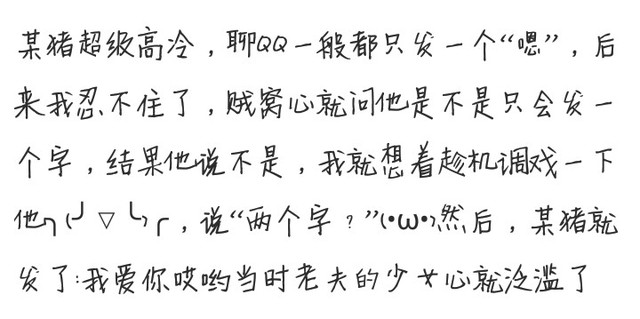 某猪超级高冷，聊QQ一般都只发一个“嗯”，后
来我忍不住了，贼窝心就问他是不是只会发一
个字，结果他说不是，我就想着趁机调戏一下
他╮(╯▽╰)╭，说“两个字？”(•ω•)然后，某猪就
发了:我爱你哎哟当时老夫的少女心就泛滥了